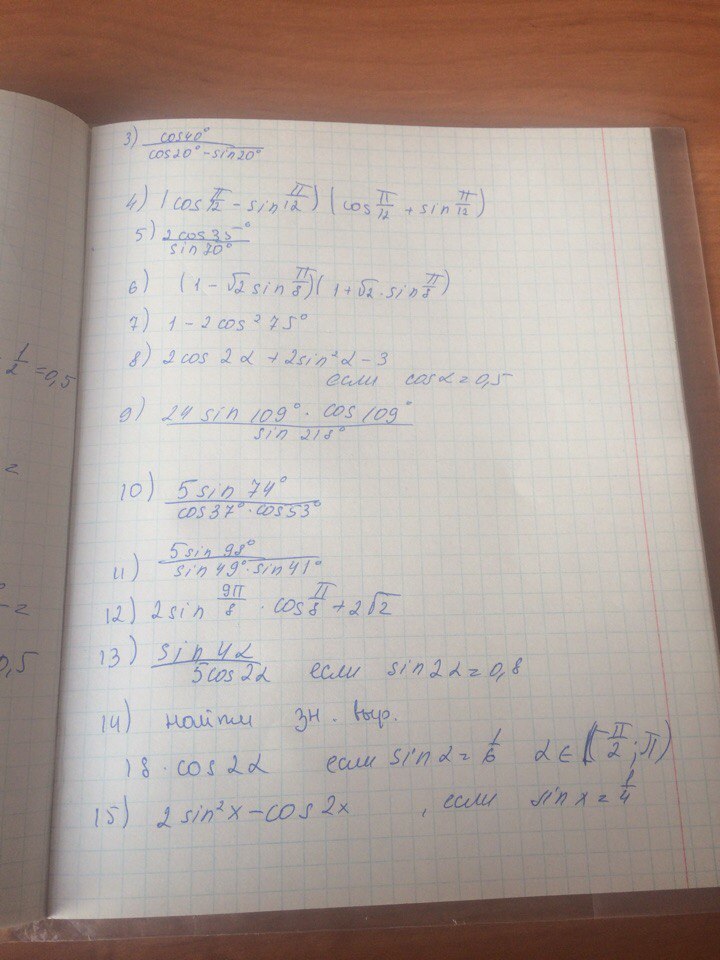 1/2 = 0,5
=
0,5
3) cos40° / (cos20° - sin20°)
4) (cos π/12 - sin π/12) (cos π/12 + sin π/12)
5) 2cos35° / sin70°
6) (1 - √2 sin π/8)(1 + √2 · sin π/8)
7) 1 - 2cos² 75°
8) 2cos 2α + 2sin²α - 3
если cosα = 0,5
9) 24 sin 109° · cos 109° / sin 218°
10) 5 sin 74° / (cos37° · cos53°)
11) 5 sin 98° / (sin 49° · sin 41°)
12) 2 sin 9π/8 · cos π/8 + 2√2
13) sin 4α / 5cos2α если sin 2α = 0,8
14) найти зн. выр.
18 · cos 2α если sin α = 1/6 α ∈ (π/2; π)
15) 2 sin² x - cos 2x , если sin x = 1/4